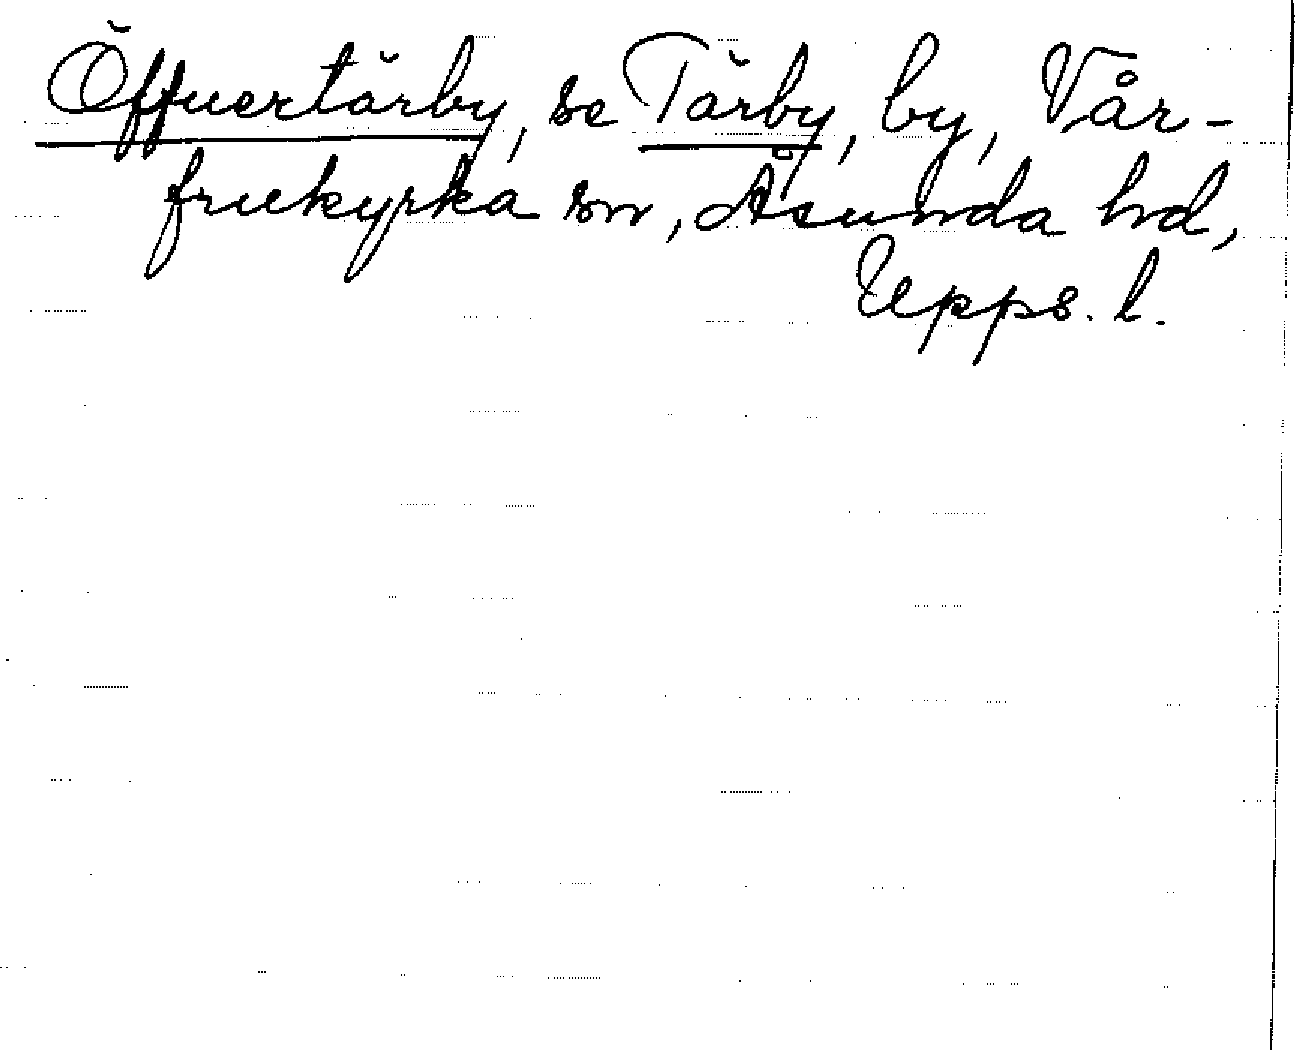 Öffuertärby, se Tärby, by, Vår-
frukyrka sn, Åsunda hd,
Upps. l.